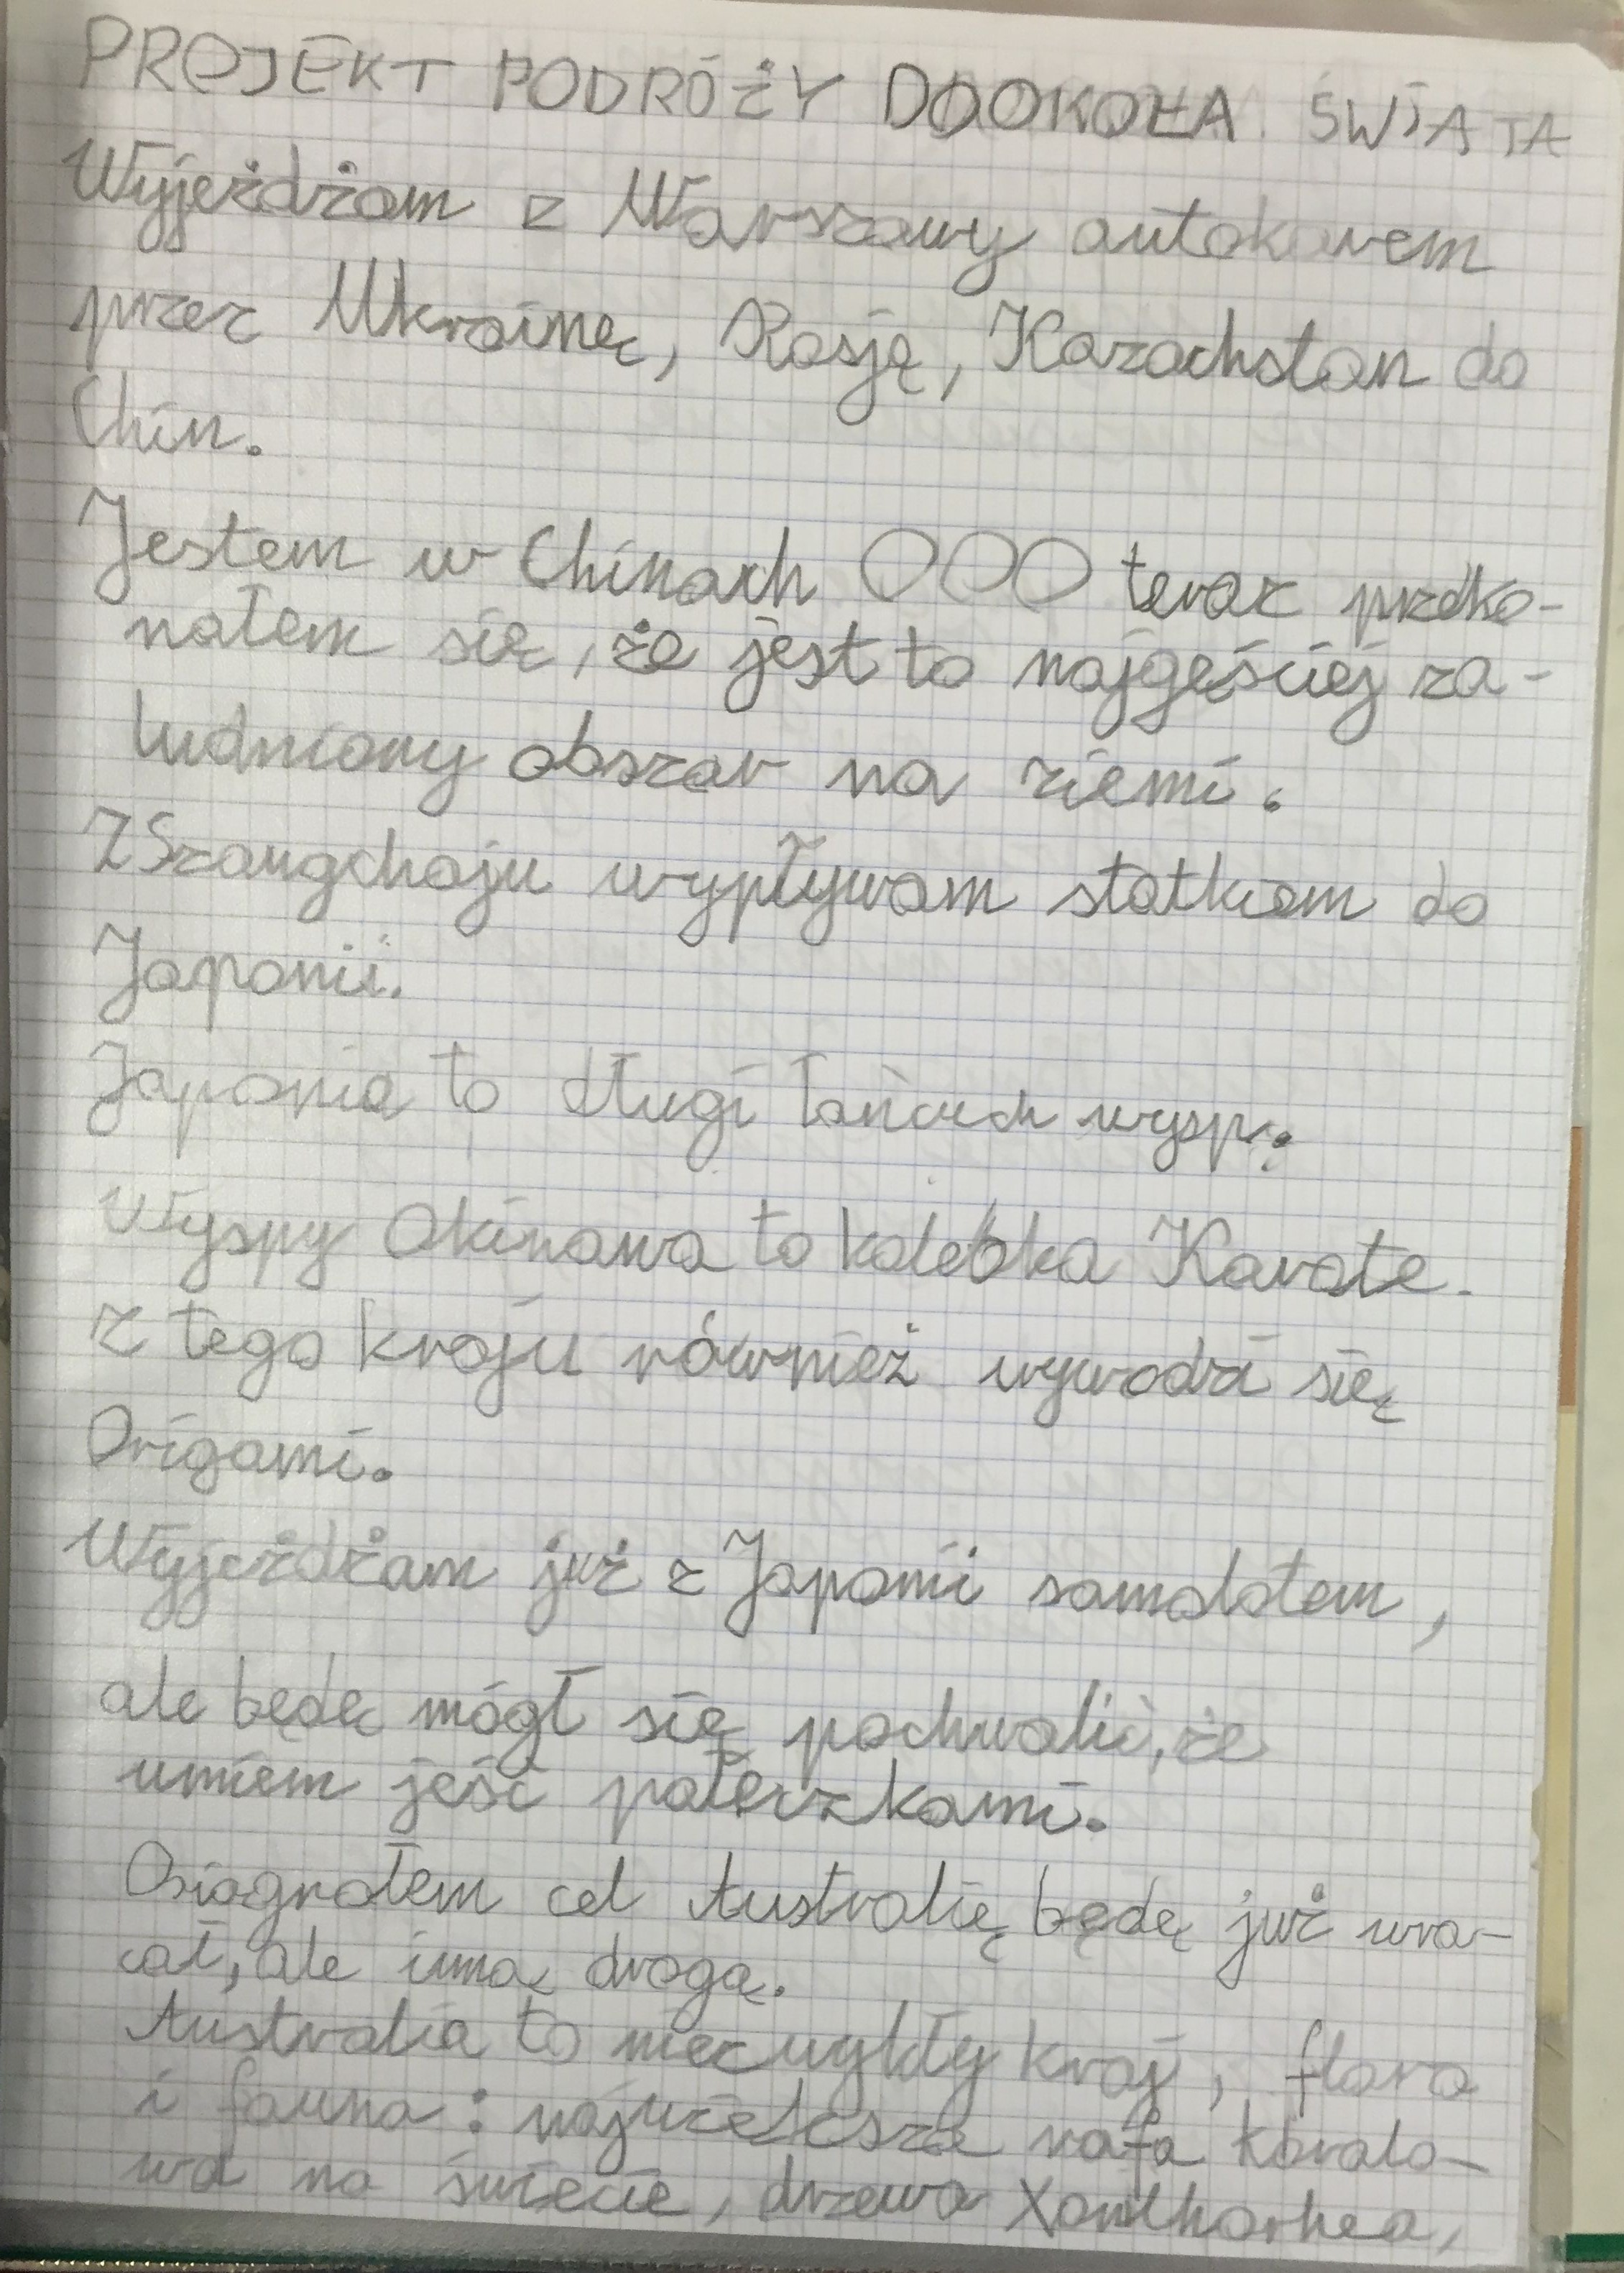 PROJEKT PODRÓŻY DOOKOŁA ŚWIATA
Wyjeżdżam z Warszawy autokarem
przez Ukrainę, Rosję, Kazachstan do
Chin.
Jestem w Chinach OOO teraz przeko-
nałem się, że jest to najgęściej za-
ludniony obszar na ziemi.
Z Szangchaju wypływam statkiem do
Japonii.
Japonia to długi łańcuch wysp.
Wyspy Okinawa to kolebka Karate.
Z tego kraju również wywodzi się
Origami.
Wyjeżdżam już z Japonii samolotem,
ale będę mógł się pochwalić, że
umiem jeść pałeczkami.
Osiągnołem cel Australię będę już wra-
cał, ale inną drogą.
Australia to niezwykły kraj, flora
i fauna: największa rafa koralo-
wa na świecie, drzewa Xanthorhea,